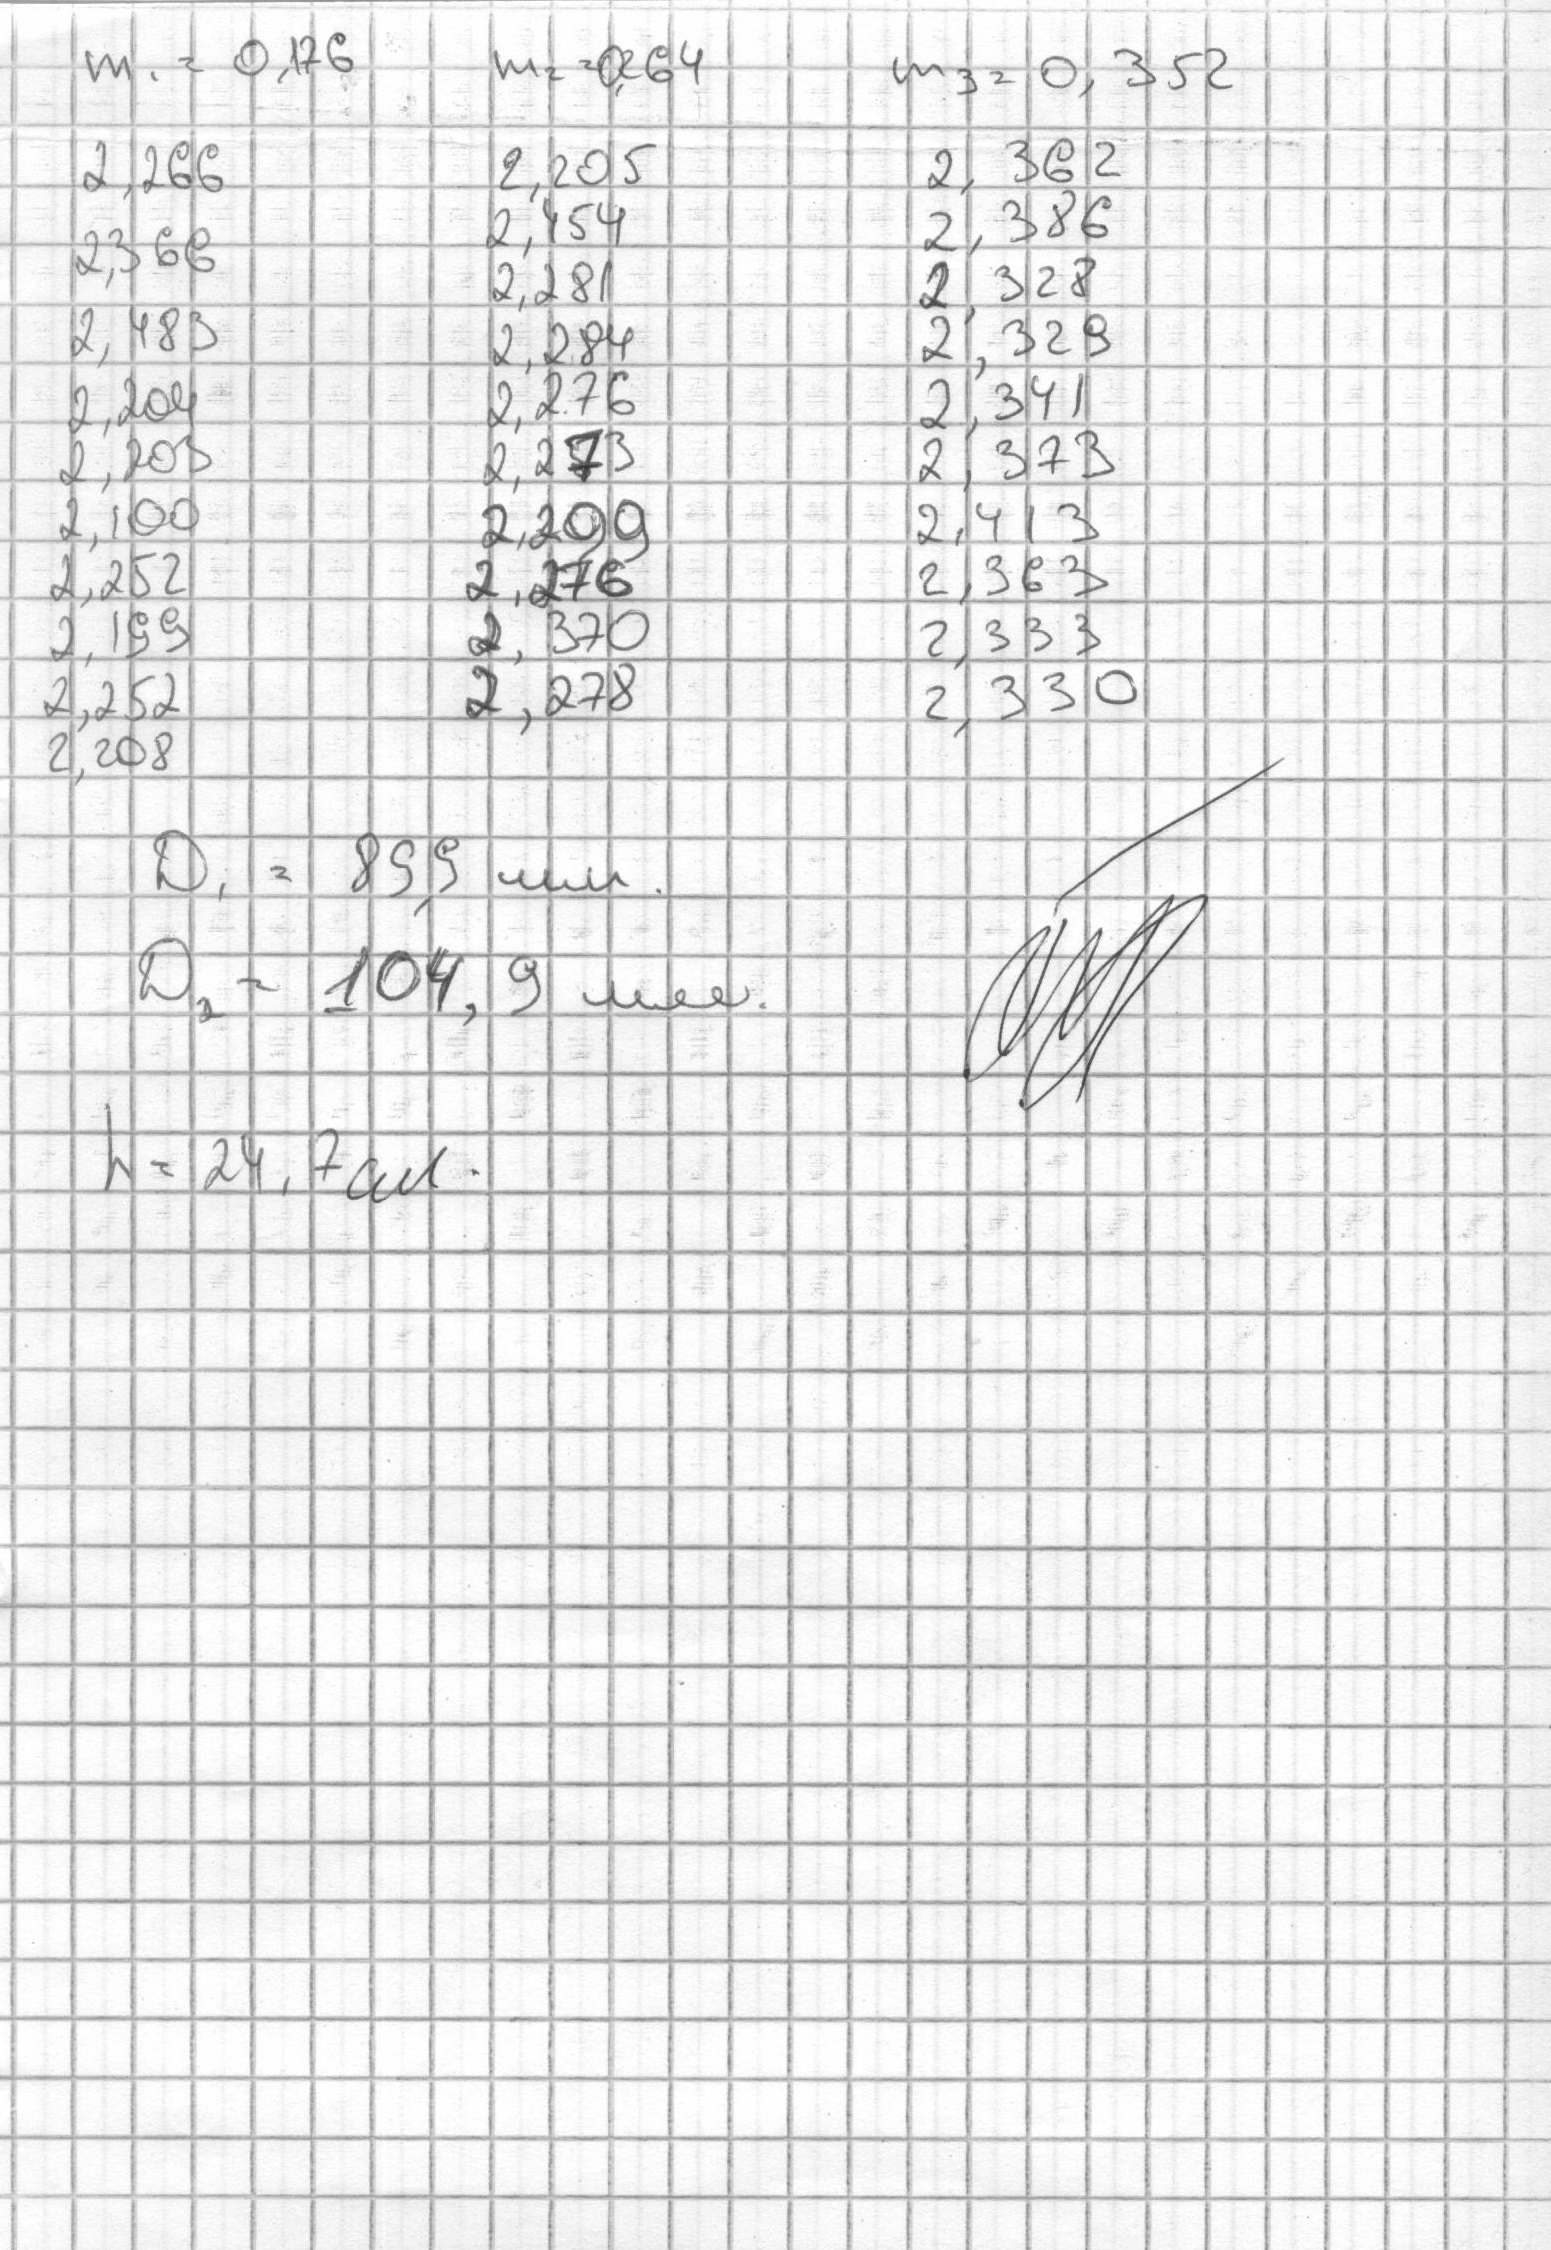 m₁ = 0,176 m₂ = 0,264 m₃ = 0,352
2,266 2,205 2,362
2,366 2,454 2,386
2,483 2,281 2,328
2,204 2,284 2,329
2,203 2,276 2,341
2,100 2,273 2,373
2,252 2,299 2,413
2,199 2,276 2,363
2,252 2,370 2,333
2,208 2,278 2,330
D₁ = 89,9 мм.
D₂ = 104,9 мм.
h = 24,7 см.